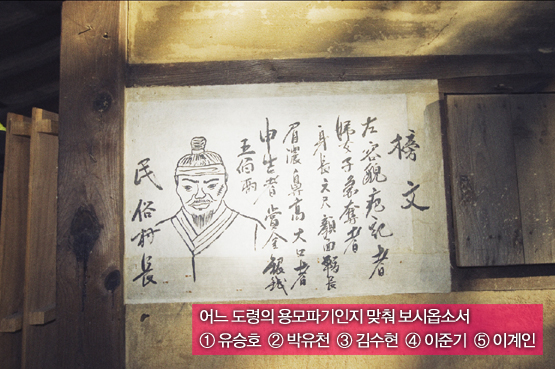 榜文
左容貌疤記者
婦女子奪者
身長六尺顔面長
眉濃鼻高大口者
申告者賞金銀
五佰兩
民俗村長
어느 도령의 용모파기인지 맞춰 보시옵소서
① 유승호 ② 박유천 ③ 김수현 ④ 이준기 ⑤ 이계인